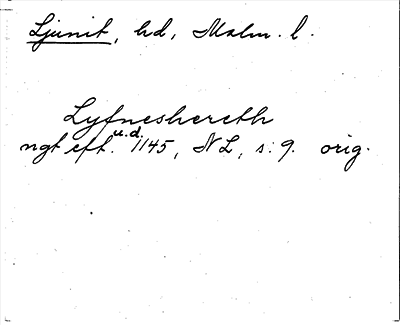 Ljunit, hd, Malm. l.
Lyfneshereth
u.d.
ngt eft. 1145, NL, s. 9. orig.